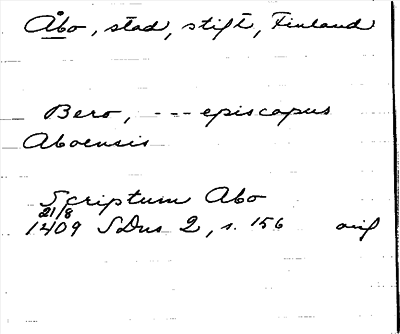 Åbo, stad, stift, Finland
Bero, --- episcopus
Aboensis
Scriptum Abo
21/8
1409 SDns 2, s. 156 orig